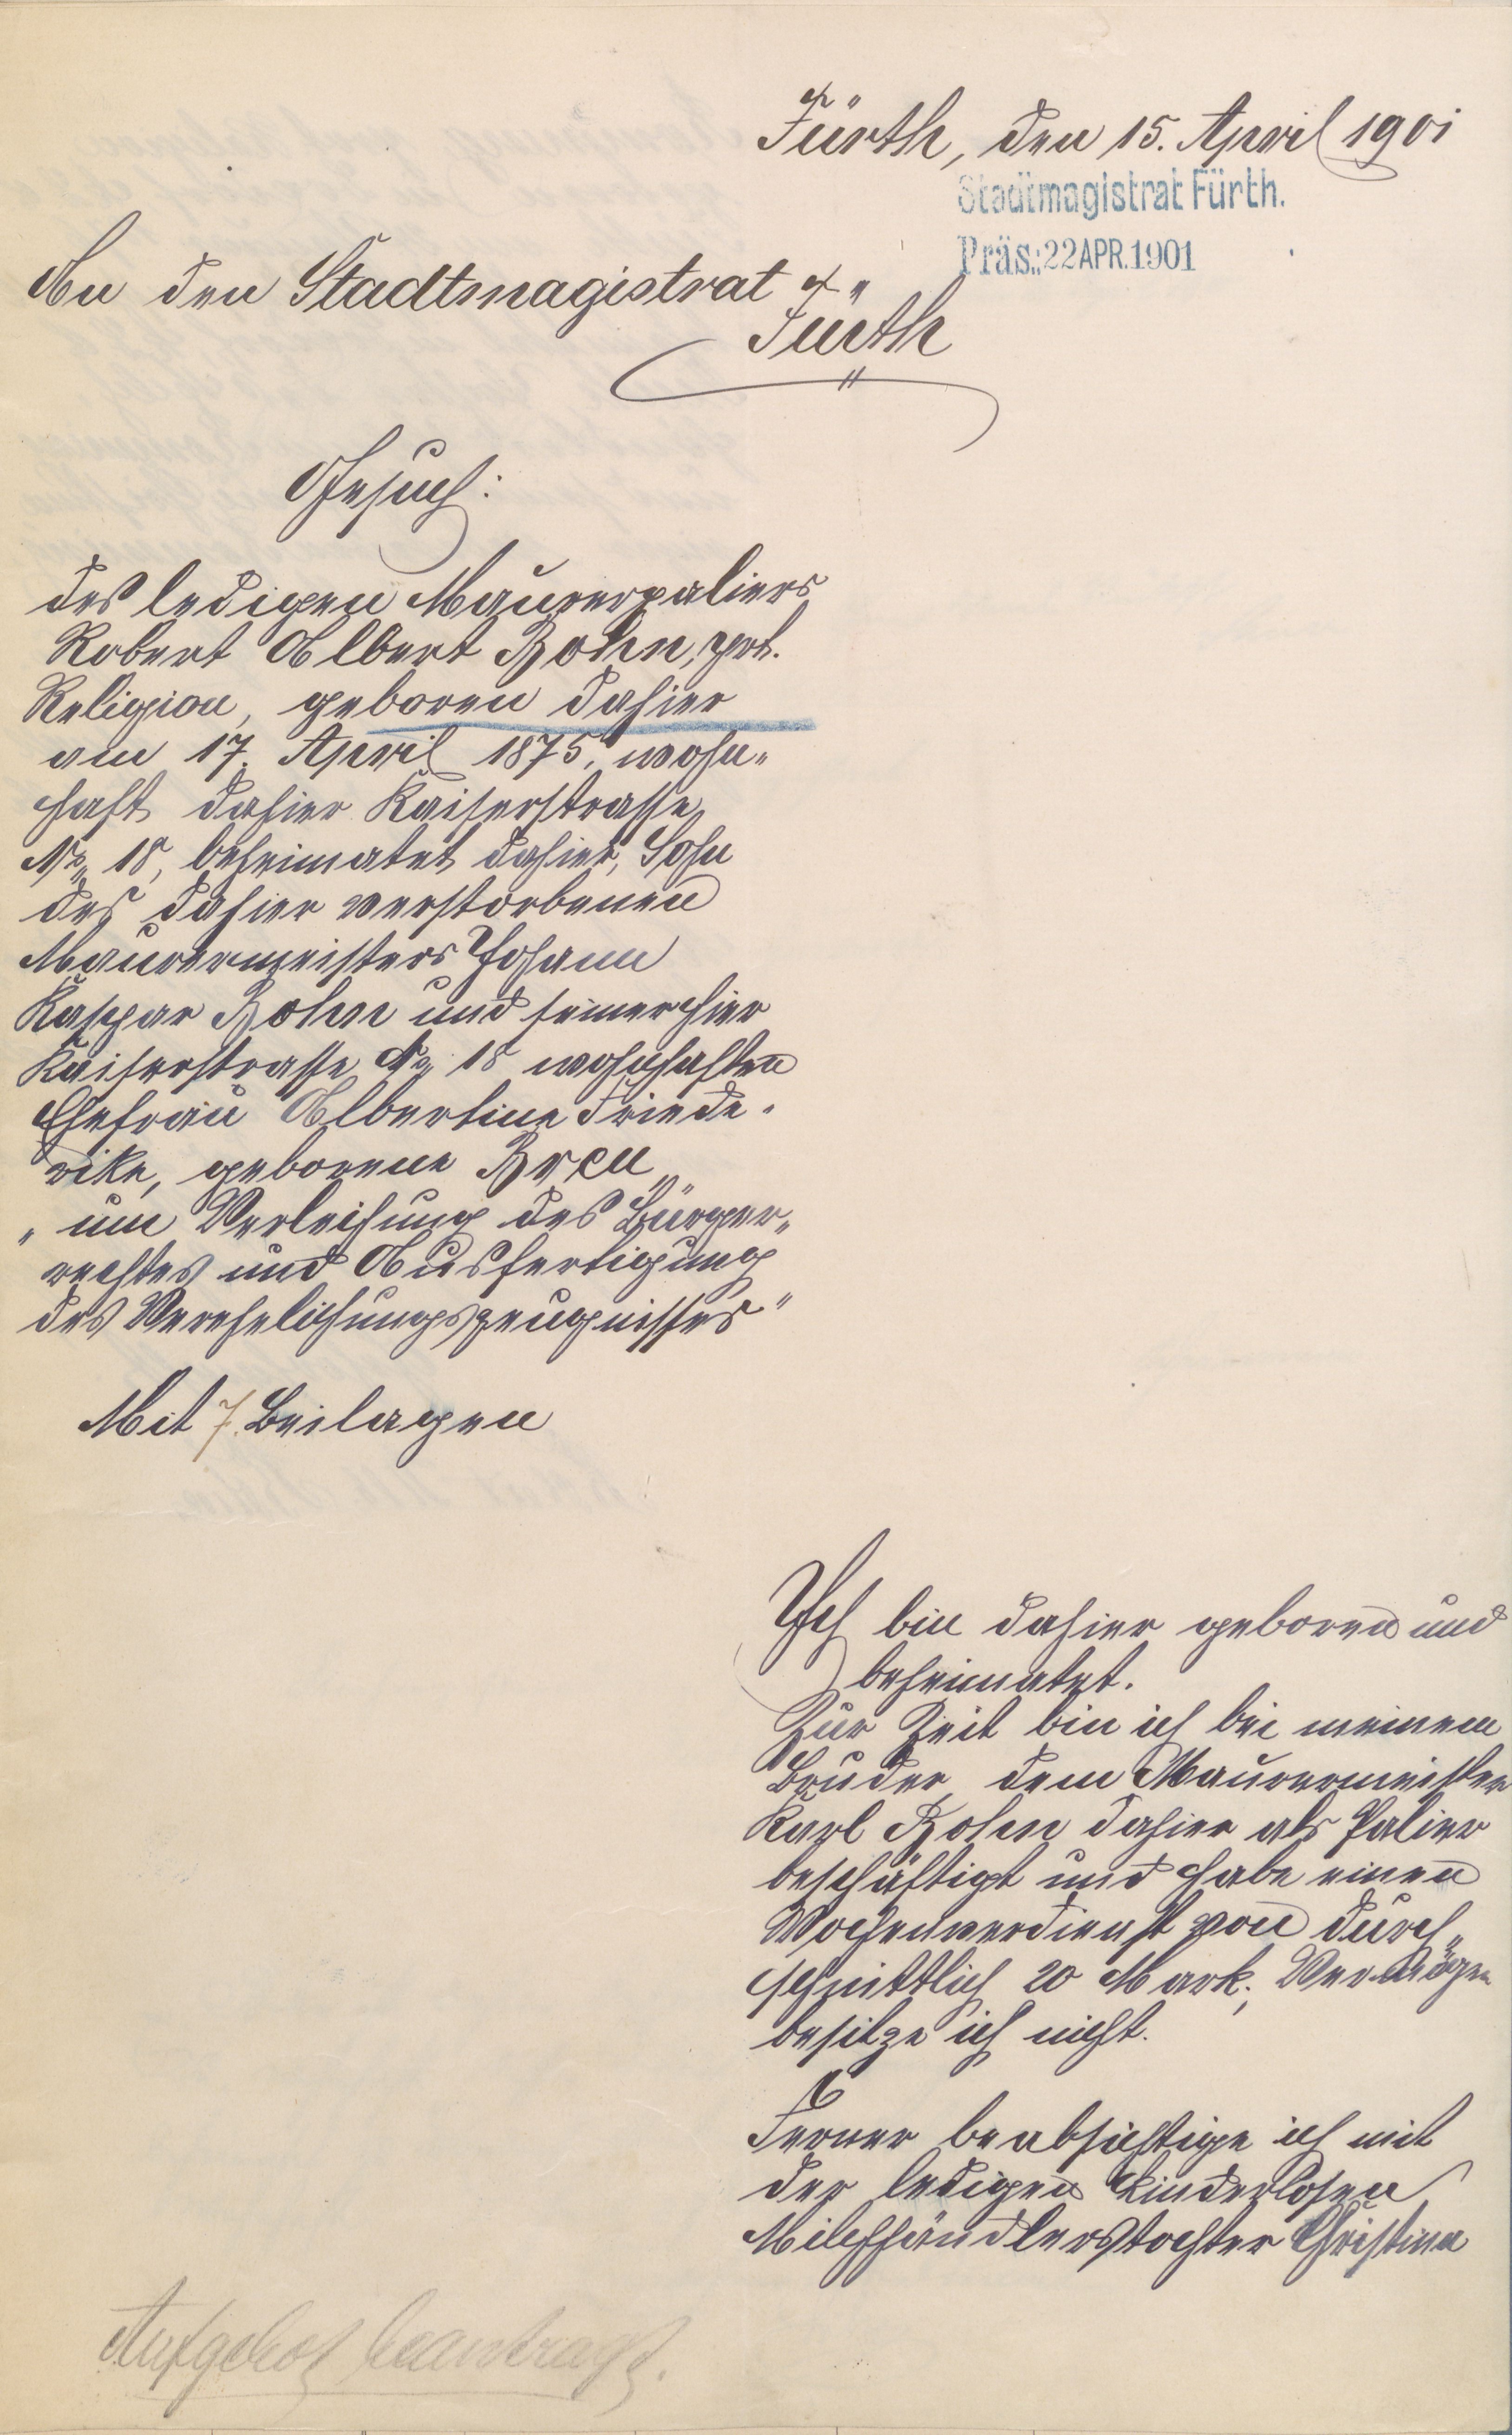 Fürth, den 15. April 1901
Stadtmagistrat Fürth.
Präs.: 22 APR. 1901
An den Stadtmagistrat
Fürth
Gesuch:
des ledigen Maurerpaliers
Robert Albert Bohn, prt.
Religion, geboren dahier
am 17. April 1875, wohn„
haft dahier Kaiserstrasse
No. 18, beheimatet dahier, Sohn
des dahier verstorbenen
Maurermeisters Johann
Kaspar Bohn und seiner hier
Kaiserstrasse No. 18 wohnhaften
Ehefrau Albertine Friede„
rike, geborene
„um Verleihung des Bürger„
rechtes und Ausfertigung
des Verehelichungszeugnisses"
Mit 7 Beilagen
Ich bin dahier geboren und
beheimatet.
Zur Zeit bin ich bei meinem
Bruder, dem Maurermeister
Karl Bohn dahier als Palier
beschäftigt und habe einen
Wochenverdienst von durch„
schnittlich 20 Mark; Vermögen
besitze ich nicht.
Ferner beabsichtige ich mit
der ledigen kinderlosen
Milchhändlerstochter Christina
Aufgebot beantragt.